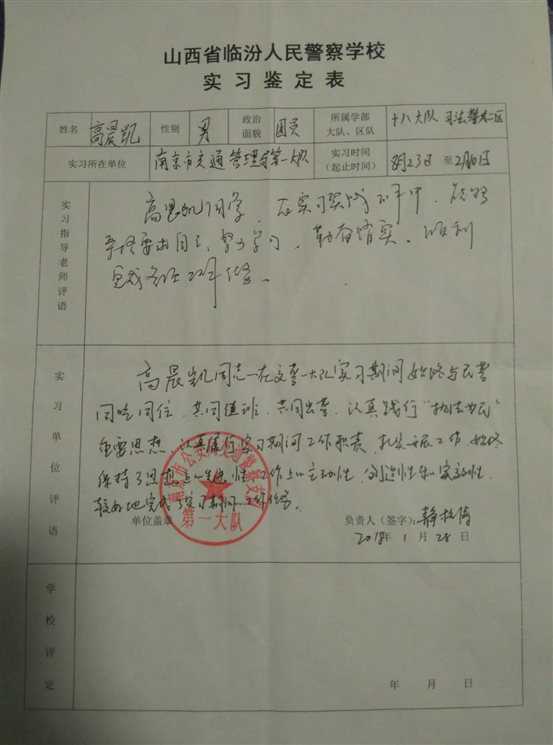 山西省临汾人民警察学校
实习鉴定表
姓名 高晨凯 性别 男 政治面貌 团员 所属学部大队、区队 十八大队 司法警务区
实习所在单位 南京市交通管理局第一大队 实习时间(起止时间) 8月23日 至 2月10日
实习指导老师评语
高晨凯同学,在实习实践工作中,能够
严格要求自己,努力学习,勤奋踏实,顺利
完成各项工作任务。
实习单位评语
高晨凯同志一在交警一大队实习期间始终与民警
同吃同住,共同值班,共同出警,认真践行"执法为民"
重要思想,认真履行实习期间工作职责,扎实开展工作,始终
保持了思想上的先进性,工作上的主动性,创造性和实效性,
较好地完成了实习期间工作任务。
第一大队
单位盖章 负责人(签字):
2018年 1 月 28 日
学校评定
年 月 日